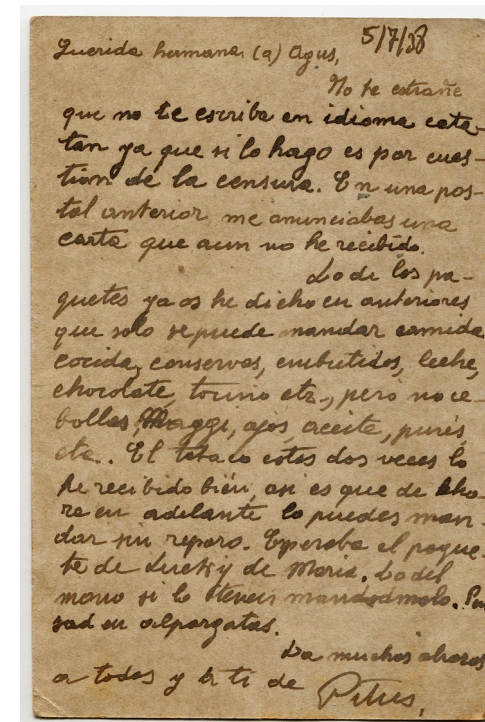 5/7/38
Querida hermana (a) Agus,
No te estrañe
que no te escriba en idioma cata-
lan ya que si lo hago es por cues-
tion de la censura. En una pos-
tal anterior me anunciabas una
carta que aun no he recibido.
Lo de los pa-
quetes ya os he dicho en anteriores
que solo se puede mandar comida
cocida, conservas, embutidos, leche,
chocolate, tocino etz., pero no ce-
bollas, Maggi, ajos, aceite, purés,
etz.. El tabaco estas dos veces lo
he recibido bién, asi es que de aho-
ra en adelante lo puedes man-
dar sin reparo. Esperaba el paque-
te de Lucky de Maria. Lo del
mono si lo teneis mandadmelo. Pen
sad en alpargatas.
Da muchos abrazos
a todos y a ti de Pitus,